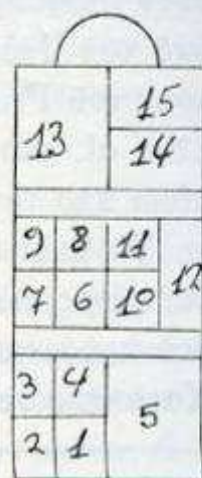 15
13 14
9 8 11
12
7 6 10
3 4
5
2 1